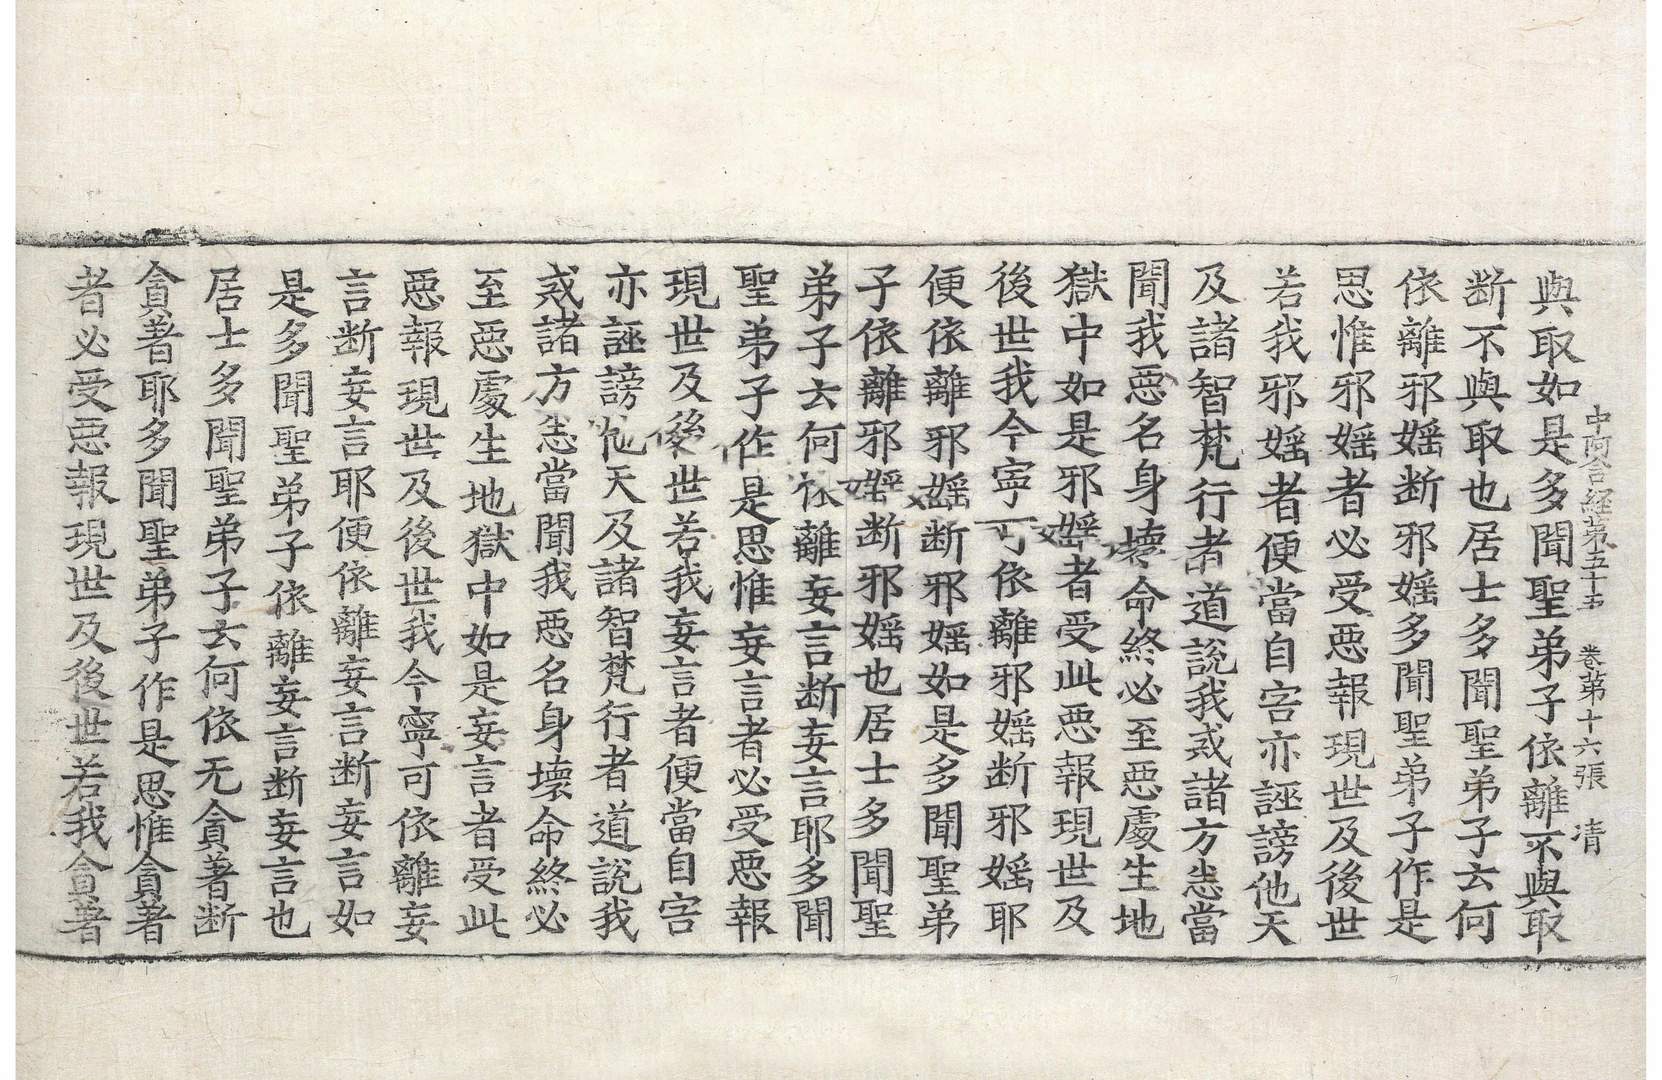 中阿含経第五十五 卷第十六張 清
與取如是多聞聖弟子依離不與取
断不與取也居士多聞聖弟子云何
依離邪婬断邪婬多聞聖弟子作是
思惟邪婬者必受惡報現世及後世
若我邪婬者便當自害亦誣謗他天
及諸智梵行者道說我戒諸方悉當
聞我惡名身壞命終必至惡處生地
獄中如是邪婬者受此惡報現世及
後世我今寧可依離邪婬断邪婬耶
便依離邪婬断邪婬如是多聞聖弟
子依離邪婬断邪婬也居士多聞聖
弟子云何依離妄言断妄言耶多聞
聖弟子作是思惟妄言者必受惡報
現世及後世若我妄言者便當自害
亦誣謗他天及諸智梵行者道說我
戒諸方悉當聞我惡名身壞命終必
至惡處生地獄中如是妄言者受此
惡報現世及後世我今寧可依離妄
言断妄言耶便依離妄言断妄言如
是多聞聖弟子依離妄言断妄言也
居士多聞聖弟子云何依无貪著断
貪著耶多聞聖弟子作是思惟貪著
者必受惡報現世及後世若我貪著